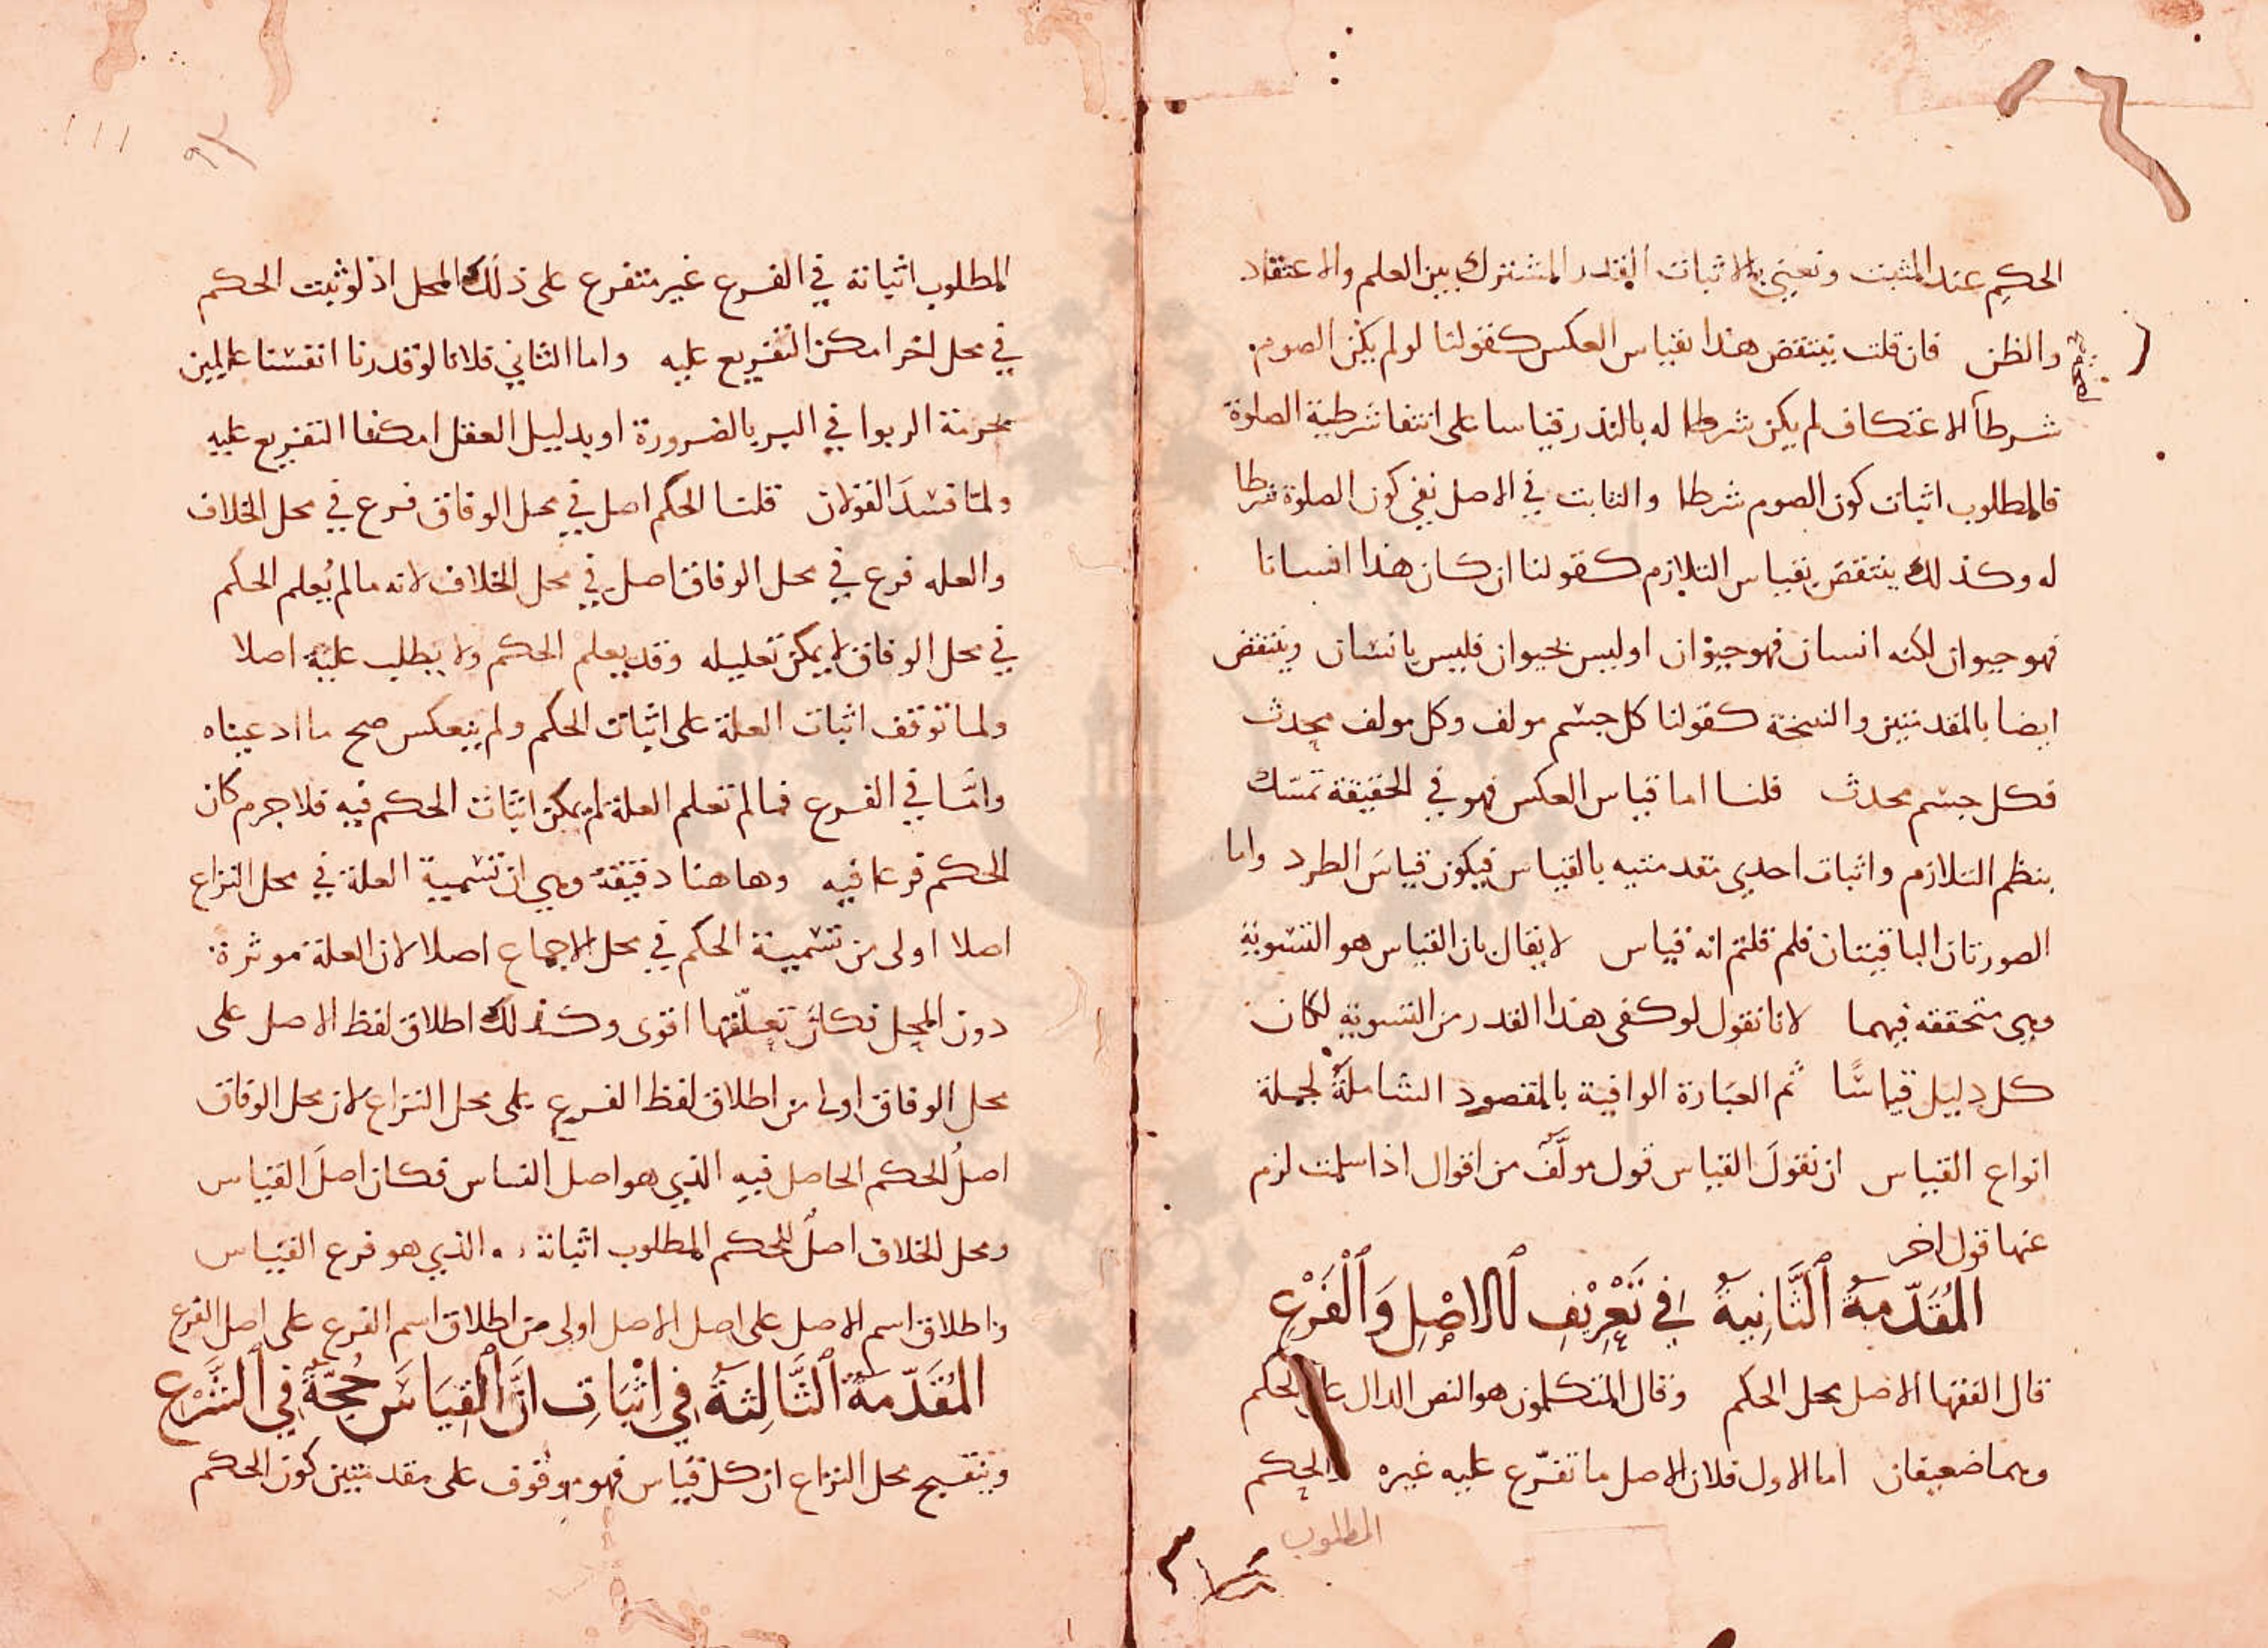 ١٦
الحكم عند المثبت ونعني بالاثبات القدر المشترك بين العلم والاعتقاد
والظن فان قلت ينتقض هذا بقياس العكس كقولنا لو لم يكن الصوم
شرطا لاعتكاف لم يكن شرطا له بالنذر قياسا على انتفا شرطية الصلوة
فالمطلوب اثبات كون الصوم شرطا والثابت في الاصل نفي كون الصلوة شرطا
له وكذلك ينتقض بقياس التلازم كقولنا ان كان هذا انسانا
فهو حيوان لكنه انسان فهو حيوان او ليس بحيوان فليس بانسان وينتقض
ايضا بالمقدمتين والنتيجة كقولنا كل جسم مولف وكل مولف محدث
فكل جسم محدث قلنا اما قياس العكس فهو في الحقيقة تمسّك
بنظم التلازم واثبات احدي مقدمتيه بالقياس فيكون قياسَ الطرد واما
الصورتان الباقيتان فلم قلتم انه قياس لا يقال بان القياس هو التسوية
وهي متحققه فيهما لانا نقول لو كفى هذا القدر من التسوية لكان
كل دليل قياسًا ثم العبَارة الوافية بالمقصود الشاملةُ لجملة
انواع القياس ان نقولَ القياس قول مولَّف من اقوال اذا سلمت لزم
عنها قول اخر
المُقَدّمَةُ ٱلثَّانِيَةُ في تَعْرِيْفِ ٱلاصْلِ وَٱلْفَرْعِ
قال الفقها الاصل محل الحكم وقال المتكلمون هو النص الدال على الحكم
وهما ضعيفان اما الاول فلان الاصل ما تفرّع عليه غيره والحكم
المطلوب
٩٢
١١١
المطلوب اثباته في الفرع غير متفرع على ذلك المحل اذ لو ثبت الحكم
في محل اخر امكن التفريع عليه واما الثاني فلانا لو قدرنا انفسنا عالمين
بحرمة الربوا في البر بالضرورة او بدليل العقل امكننا التفريع عليه
ولمّا فسَدَ القولان قلنا الحكم اصل في محل الوفاق فرع في محل الخلاف
والعله فرع في محل الوفاق اصل في محل الخلاف لانه ما لم يُعلم الحكم
في محل الوفاق لا يمكن تعليله وقد يعلم الحكم ولا يطلب عليّة اصلا
ولما توقف اثبات العلة على اثبات الحكم ولم ينعكس صح ما ادعيناه
وامَّا في الفرع فما لم تعلم العلة لم يمكن اثبات الحكم فيه فلا جرم كان
الحكم فرعا فيه وها هنا دقيقة وهي ان تسمية العلة في محل النزاع
اصلا اولى من تسمية الحكم في محل الاجماع اصلا لان العلة موثرة
دون المحل فكان تعلّقها اقوى وكذلك اطلاق لفظ الاصل على
محل الوفاق اولى من اطلاق لفظ الفرع على محل النزاع لان محل الوفاق
اصلُ الحكم الحاصل فيه الذي هو اصل القياس فكان اصلَ القياس
ومحل الخلاف اصلٌ للحكم المطلوب اثباته والذي هو فرع القيَاس
واطلاق اسم الاصل على اصل الاصل اولى من اطلاق اسم الفرع على اصل الفرع
المُقَدّمَةُ ٱلثَّالِثَةُ فِي اِثْبَاتِ انَّ ٱلْقِيَاسَ حُجّةٌ فِي ٱلشَّرْعِ
وتنقيح محل النزاع ان كل قياس فهو موقوف على مقدمتين كون الحكم